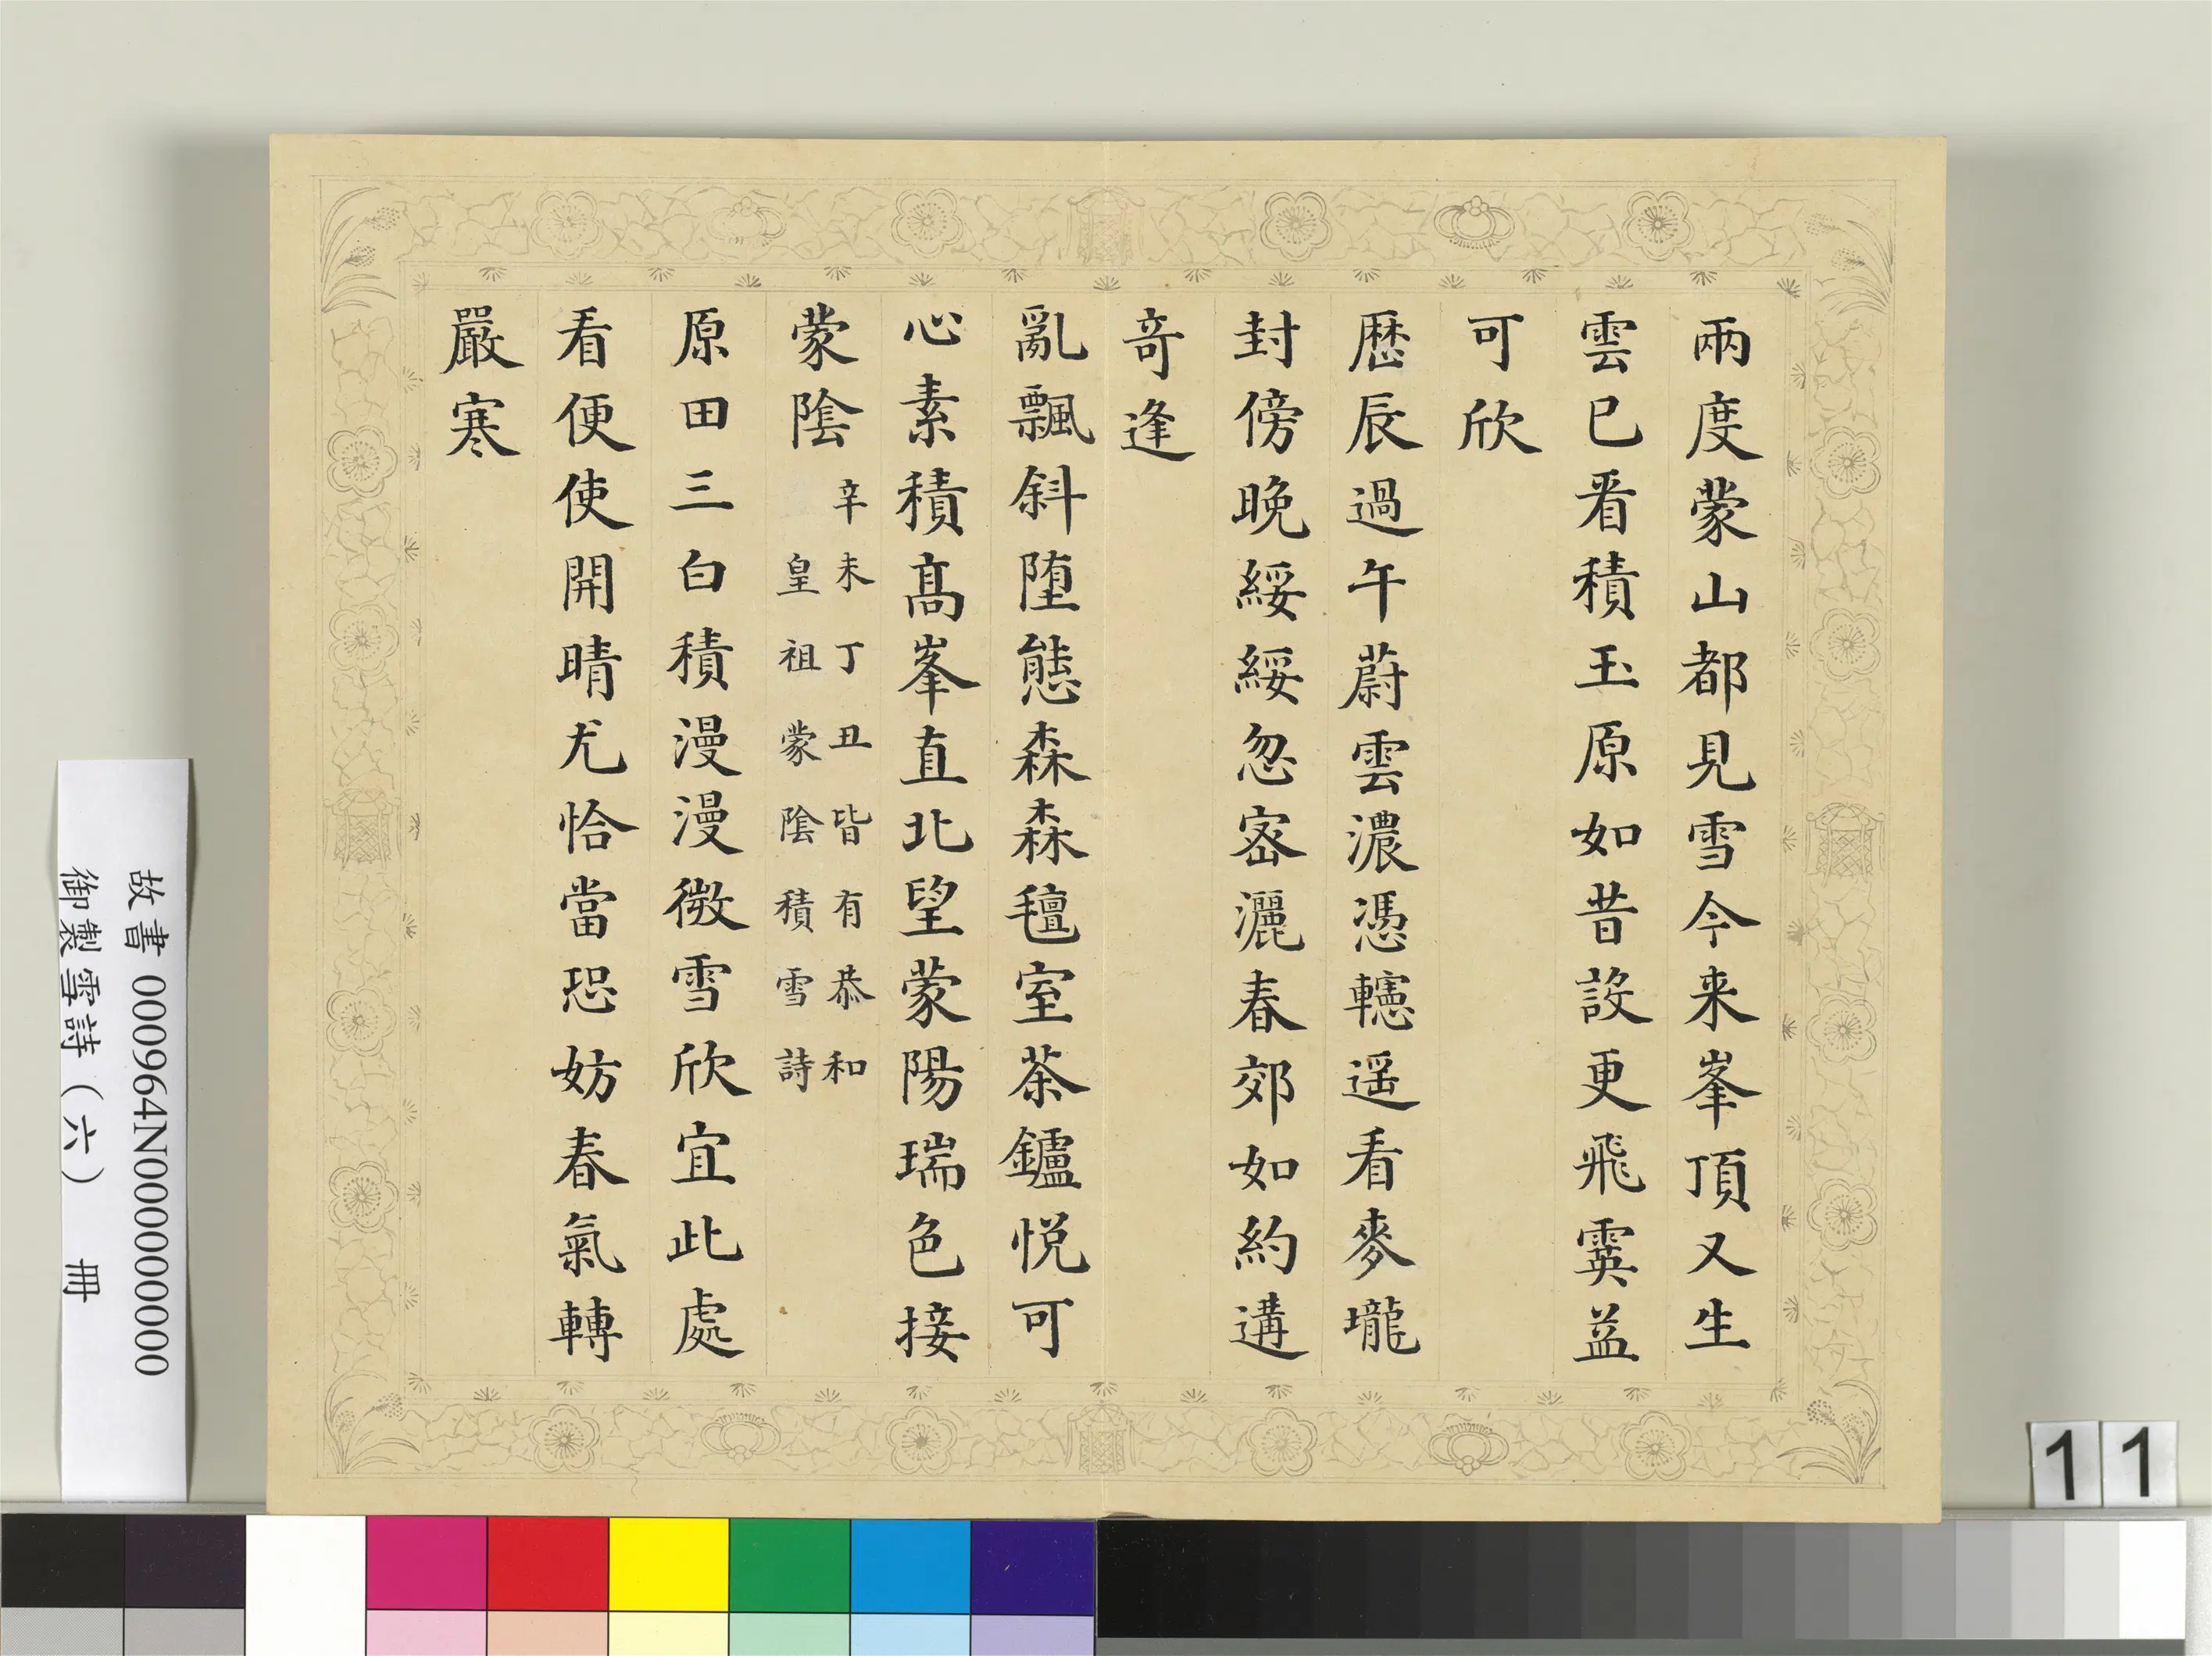 兩度蒙山都見雪今来峯頂又生
雲已看積玉原如昔設更飛霙益
可欣
歴辰過午蔚雲濃憑轗遥看麥壠
封傍晚綏綏忽宻灑春郊如約遘
竒逢
亂飄斜墮態森森氊室茶鑪悦可
心素積髙峯直北望蒙陽瑞色接
蒙隂
辛未丁丑皆有恭和
皇祖蒙隂積雪詩
原田三白積漫漫微雪欣宜此處
看便使開晴尤恰當恐妨春氣轉
嚴寒
故書 000964N000000000
御製雪詩（六） 冊
11